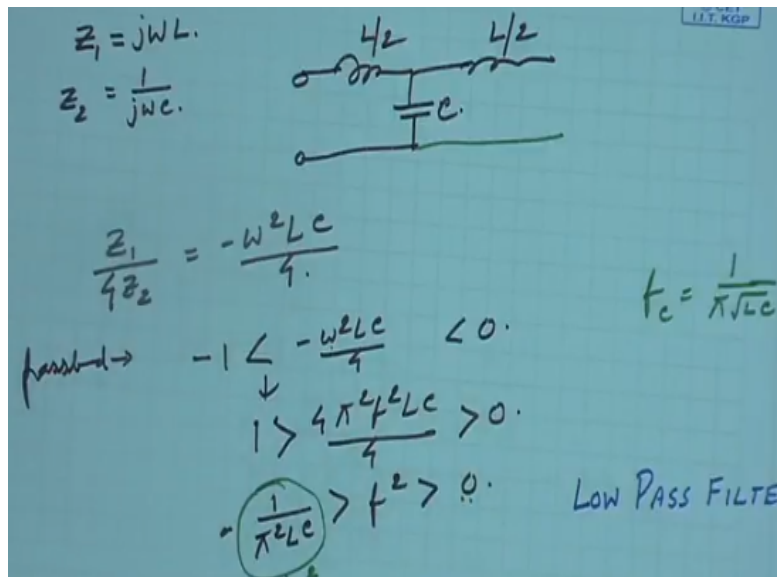 I.I.T. KGP
Z₁ = jWL.
L/2 L/2
Z₂ = 1/jWC.
C.
Z₁/4Z₂ = -W²LC/4.
f_c = 1/π√LC
passband→ -1 < -W²LC/4 < 0.
↓
1 > 4π²f²LC/4 > 0.
1/π²LC > f² > 0.
LOW PASS FILTE